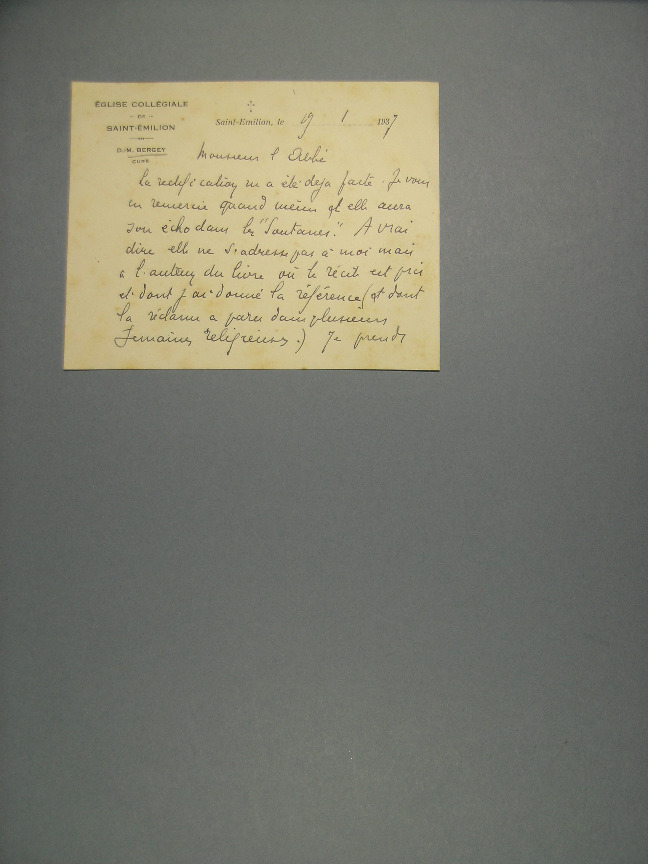 ÉGLISE COLLÉGIALE
DE
SAINT-ÉMILION
D.-M. BERGEY
CURÉ
Saint-Emilion, le 19 1 1937
Monsieur l Abbé
la rectification m a été deja faite. Je vous
en remercie quand même et elle aura
son écho dans les "Soutanes". A vrai
dire elle ne s'adresse pas à moi mais
à l'auteur du livre où le récit est pris
et dont j'ai donné la référence (et dont
la réclame a paru dans plusieurs
Semaines religieuses.) Je prends